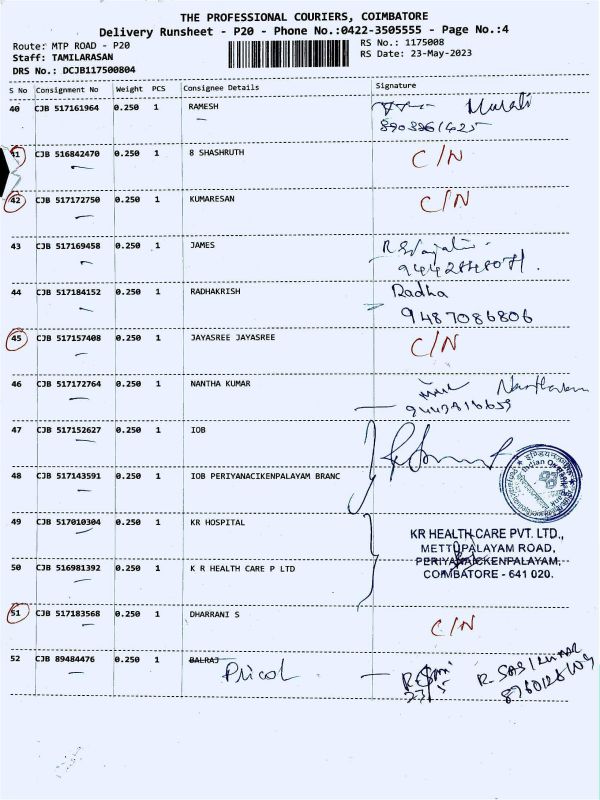 THE PROFESSIONAL COURIERS, COIMBATORE
Delivery Runsheet - P20 - Phone No.:0422-3505555 - Page No.:4
Route: MTP ROAD - P20 RS No.: 1175008
Staff: TAMILARASAN RS Date: 23-May-2023
DRS No.: DCJB117500804
S No Consignment No Weight PCS Consignee Details Signature
40 CJB 517161964 0.250 1 RAMESH Murali
41 CJB 516842470 0.250 1 8 SHASHRUTH C/N
42 CJB 517172750 0.250 1 KUMARESAN C/N
43 CJB 517169458 0.250 1 JAMES
44 CJB 517184152 0.250 1 RADHAKRISH Radha
9487086806
45 CJB 517157408 0.250 1 JAYASREE JAYASREE C/N
46 CJB 517172764 0.250 1 NANTHA KUMAR
47 CJB 517152627 0.250 1 IOB
48 CJB 517143591 0.250 1 IOB PERIYANACIKENPALAYAM BRANC
49 CJB 517010304 0.250 1 KR HOSPITAL
KR HEALTH CARE PVT. LTD.,
METTUPALAYAM ROAD,
50 CJB 516981392 0.250 1 K R HEALTH CARE P LTD PERIYANAICKENPALAYAM,
COIMBATORE - 641 020.
51 CJB 517183568 0.250 1 DHARRANI S C/N
52 CJB 89484476 0.250 1 BALRAJ Pricol R. SASIKUMAR